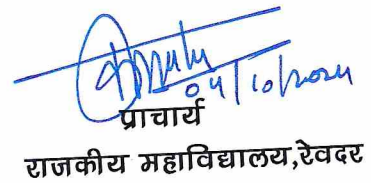 04/10/2024
प्राचार्य
राजकीय महाविद्यालय,रेवदर